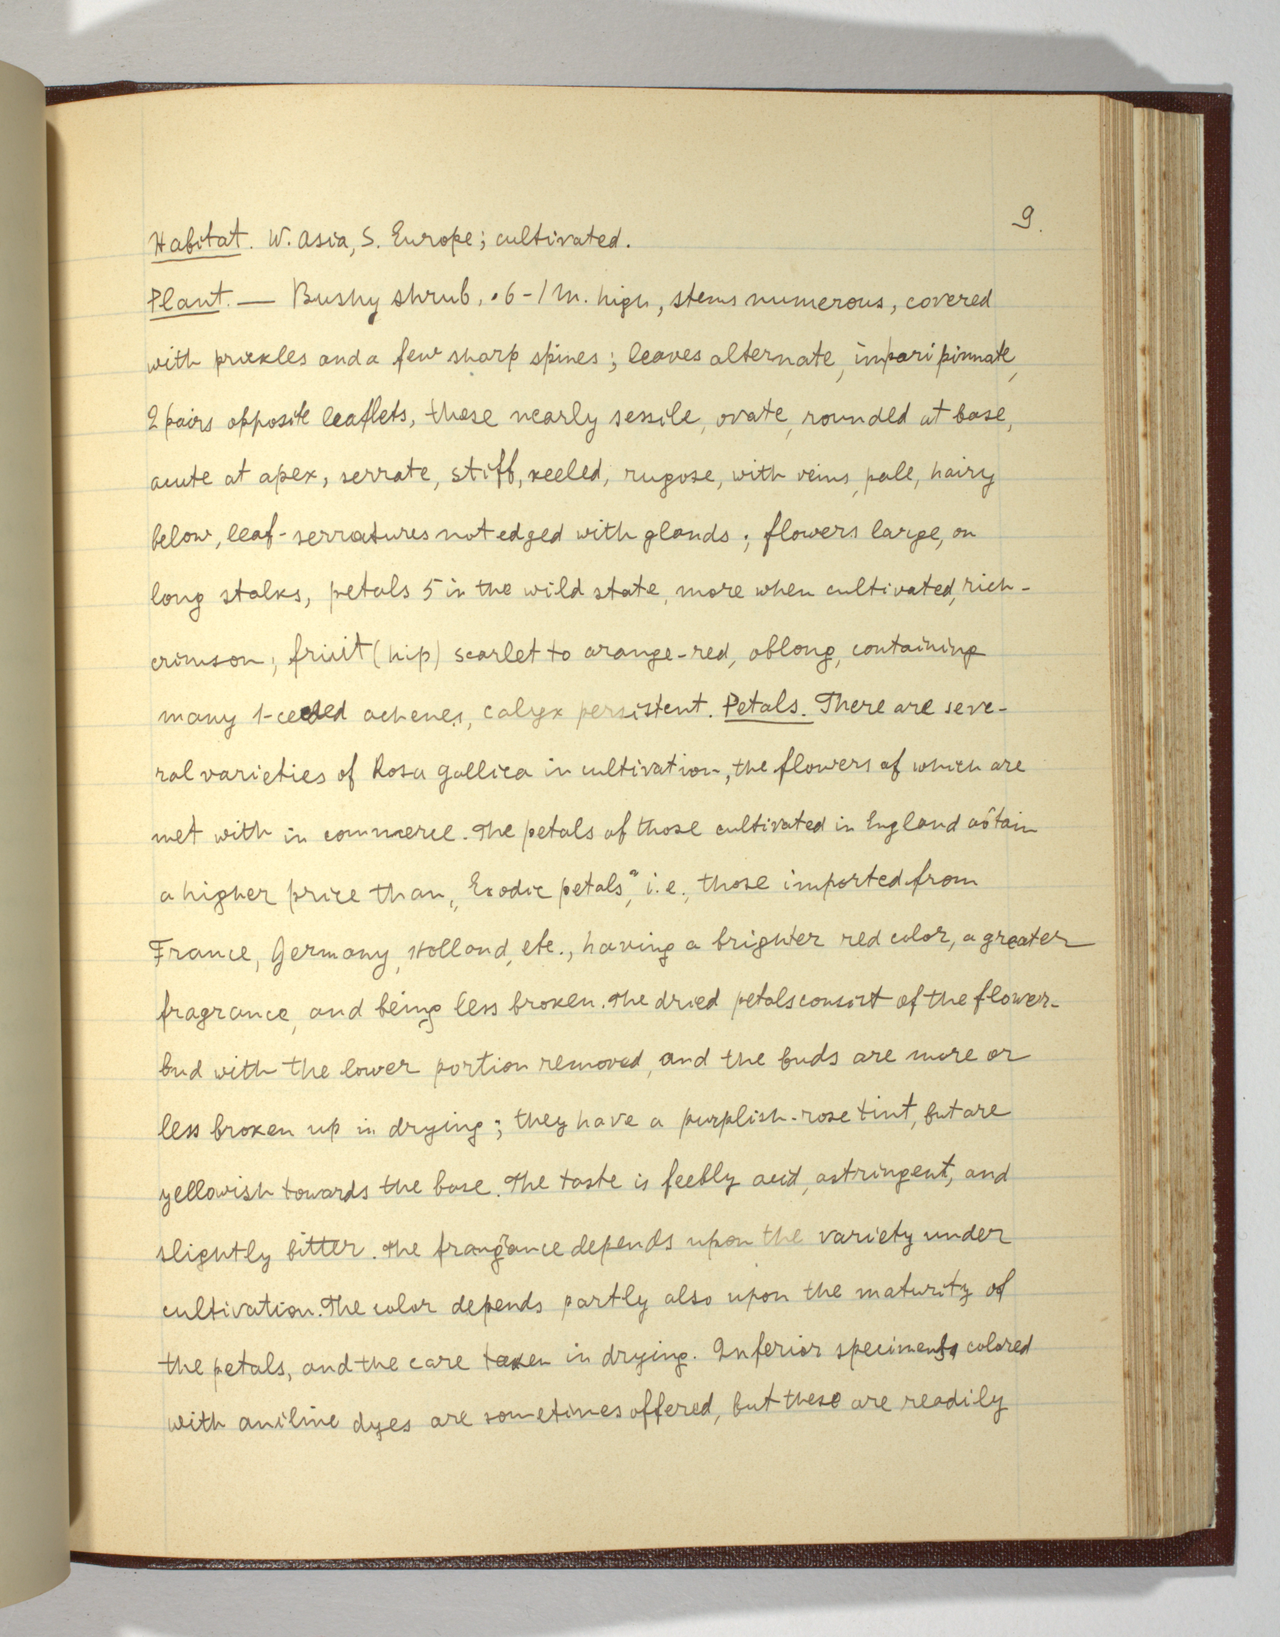 9.
Habitat. W. Asia, S. Europe; cultivated.
Plant. — Bushy shrub, .6-1 m. high, stems numerous, covered
with prickles and a few sharp spines; leaves alternate, imparipinnate,
2 pairs opposite leaflets, these nearly sessile, ovate, rounded at base,
acute at apex, serrate, stiff, keeled, rugose, with veins, pale, hairy
below, leaf-serratures not edged with glands; flowers large, on
long stalks, petals 5 in the wild state, more when cultivated, rich-
crimson; fruit (hip) scarlet to orange-red, oblong, containing
many 1-ceeded achenes, calyx persistent. Petals. There are seve-
ral varieties of Rosa gallica in cultivation, the flowers of which are
met with in commerce. The petals of those cultivated in England obtain
a higher price than „Exodic petals”, i.e., those imported from
France, Germany, Holland, etc., having a brighter red color, a greater
fragrance, and being less broken. The dried petals consist of the flower-
bud with the lower portion removed, and the buds are more or
less broken up in drying; they have a purplish-rose tint, but are
yellowish towards the base. The taste is feebly acid, astringent, and
slightly bitter. The frangance depends upon the variety under
cultivation. The color depends partly also upon the maturity of
the petals, and the care taken in drying. Inferior specimens colored
with aniline dyes are sometimes offered, but these are readily